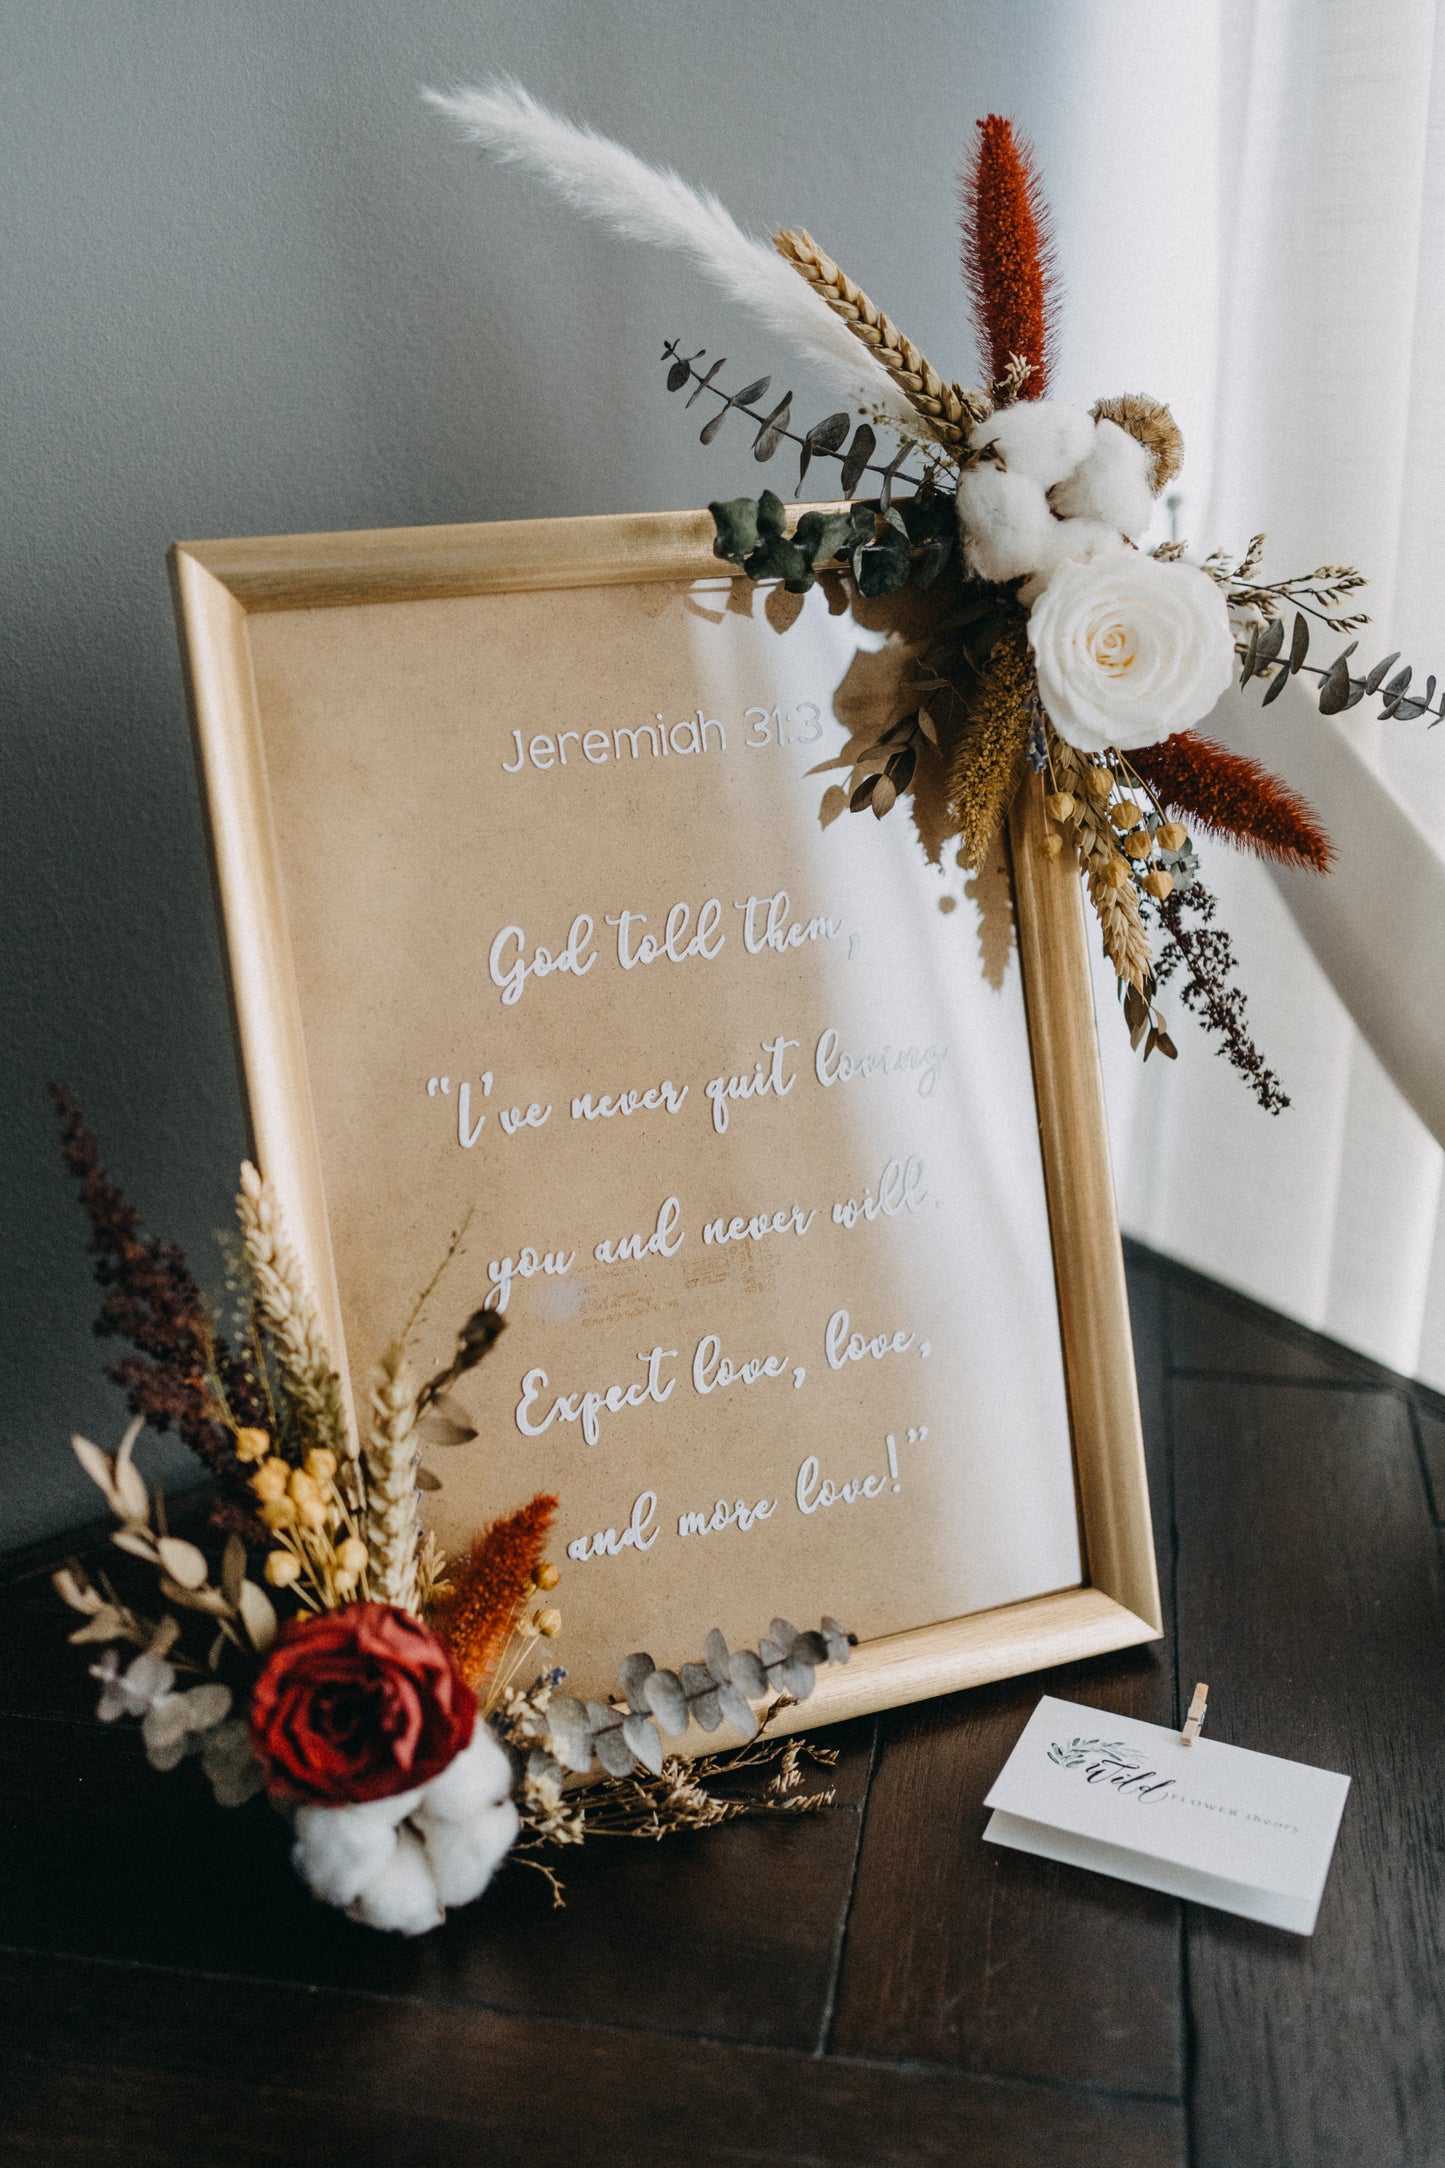 Jeremiah 31:3
God told them,
"I've never quit loving
you and never will.
Expect love, love,
and more love!"
Wild FLOWER theory